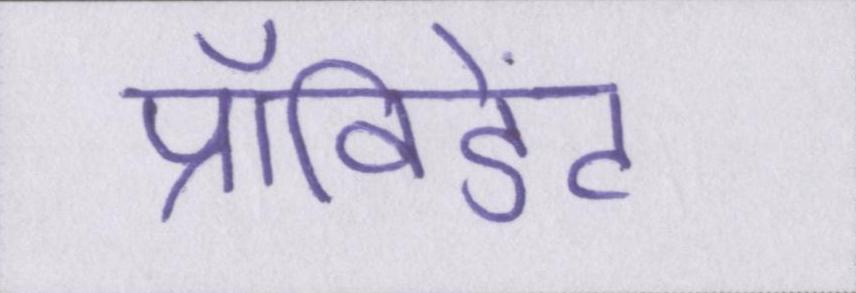 प्रॉविडेंट